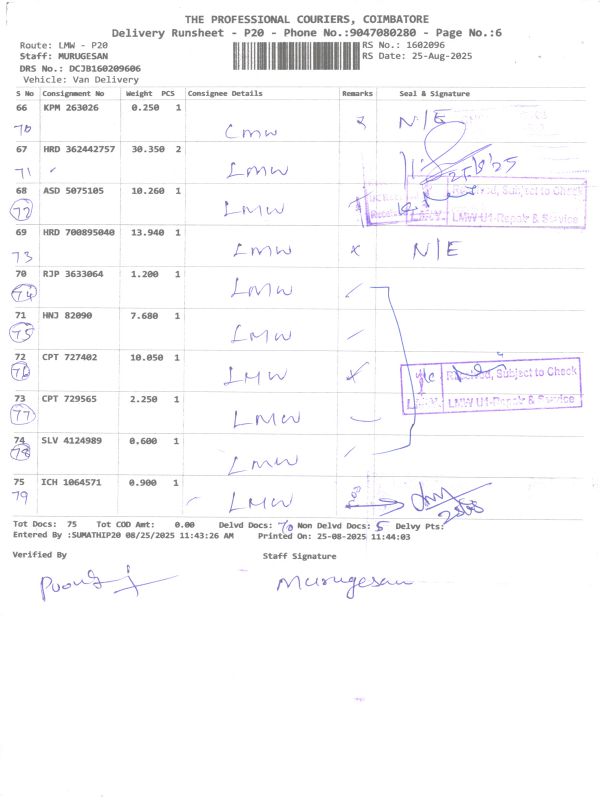 THE PROFESSIONAL COURIERS, COIMBATORE
Delivery Runsheet - P20 - Phone No.:9047080280 - Page No.:6
Route: LMW - P20 RS No.: 1602096
Staff: MURUGESAN RS Date: 25-Aug-2025
DRS No.: DCJB160209606
Vehicle: Van Delivery
S No Consignment No Weight PCS Consignee Details Remarks Seal & Signature
66 KPM 263026 0.250 1
70 LMW N/E
67 HRD 362442757 30.350 2
71 LMW 25/8/25
68 ASD 5075105 10.260 1 Received, Subject to Check
72 LMW LMW U1-Repair & Service
69 HRD 700895040 13.940 1
73 LMW x N/E
70 RJP 3633064 1.200 1
74 LMW
71 HNJ 82090 7.680 1
75 LMW
72 CPT 727402 10.050 1 Received, Subject to Check
76 LMW x
73 CPT 729565 2.250 1 L.M.W. LMW U1-Repair & Service
77 LMW
74 SLV 4124989 0.600 1
78 LMW
75 ICH 1064571 0.900 1
79 LMW
Tot Docs: 75 Tot COD Amt: 0.00 Delvd Docs: 70 Non Delvd Docs: 5 Delvy Pts:
Entered By :SUMATHIP20 08/25/2025 11:43:26 AM Printed On: 25-08-2025 11:44:03
Verified By Staff Signature
Murugesan